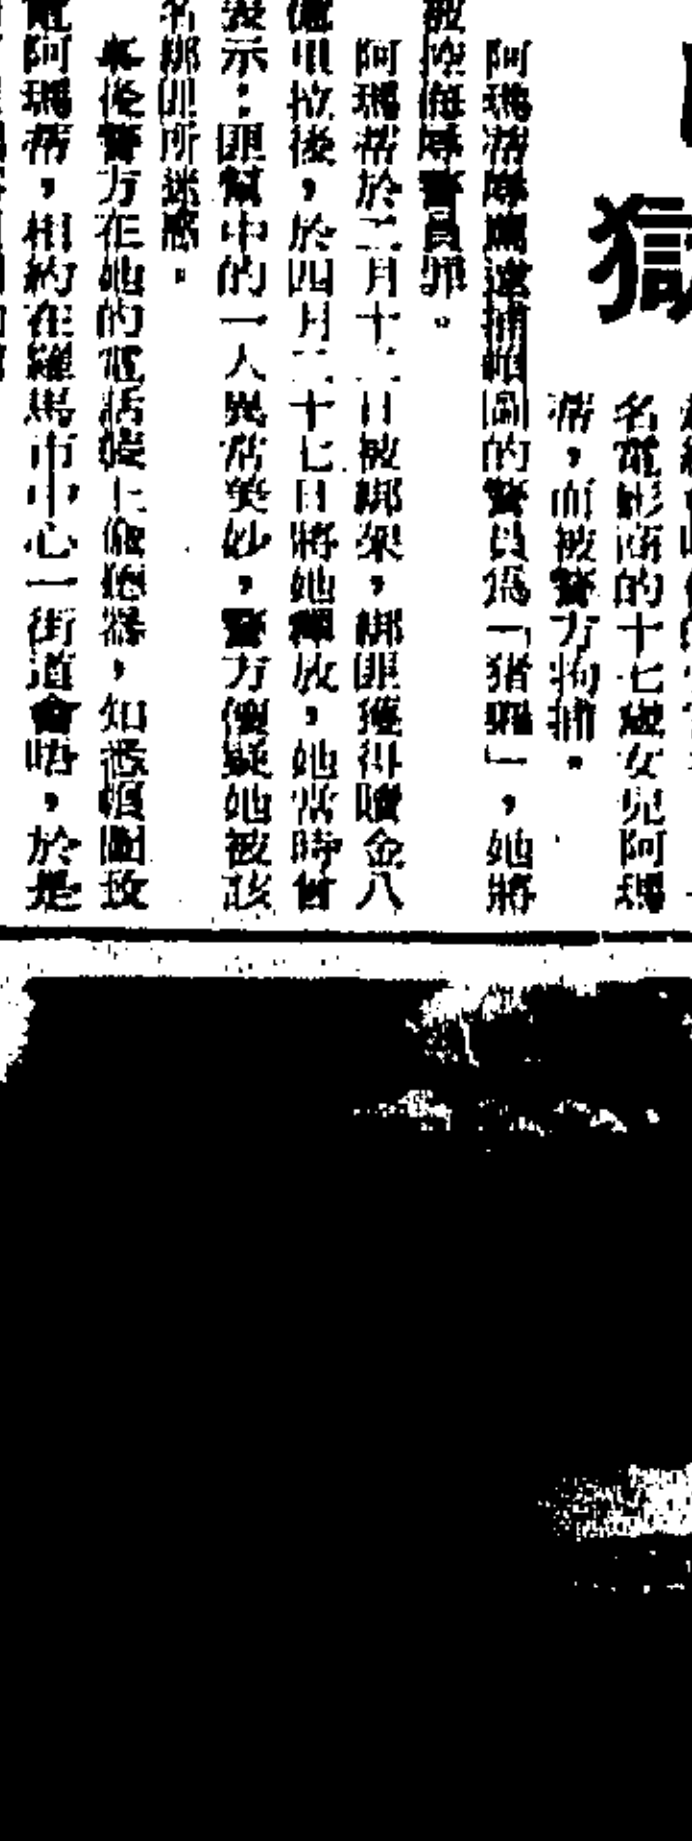 獄
名電影商的十七歲女兒阿瑪
蒂，而被警方拘捕。
阿瑪蒂辱罵逮捕帕圖的警員爲「猪玀」，她將
被控侮辱警員罪。
阿瑪蒂於二月十二日被綁架，綁匪獲得贖金八
億里拉後，於四月二十七日將她釋放，她當時曾
表示：匪幫中的一人異常美妙，警方懷疑她被該
名綁匪所迷惑。
其後警方在她的電話裝上偷聽器，知悉帕圖致
電阿瑪蒂，相約在羅馬市中心一街道會晤，於是